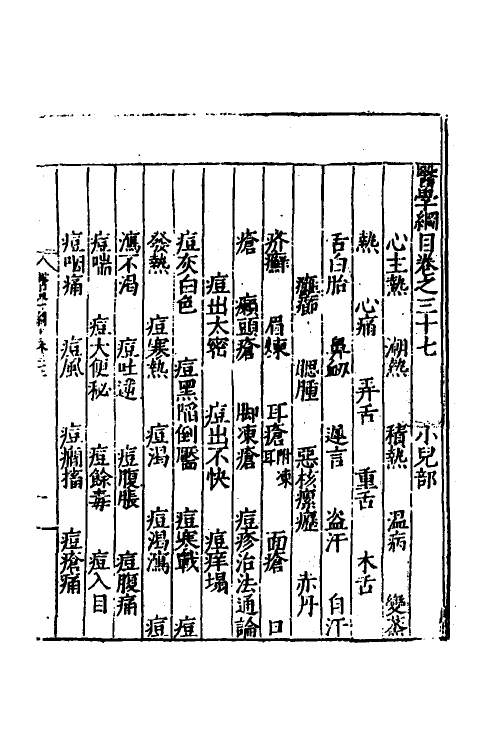 醫學綱目卷之三十七　小兒部
心主熱　潮熱　積熱　溫病　變蒸
熱　心痛　弄舌　重舌　木舌
舌白胎　鼻衂　遲言　盜汗　自汗
癰癤　腮腫　惡核瘰癧　赤丹
疥癬　眉煉　耳瘡附凍耳　面瘡　口
瘡　癩頭瘡　脚凍瘡　痘疹治法通論
痘出太密　痘出不快　痘痒塌
痘灰白色　痘黑陷倒靨　痘寒戰　痘
發熱　痘寒熱　痘渴　痘渴瀉　痘
瀉不渴　痘吐逆　痘腹脹　痘腹痛
痘喘　痘大便秘　痘餘毒　痘入目
痘咽痛　痘風　痘癇搐　痘瘡痛